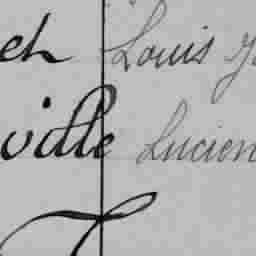 ch Louis J
ville Lucien